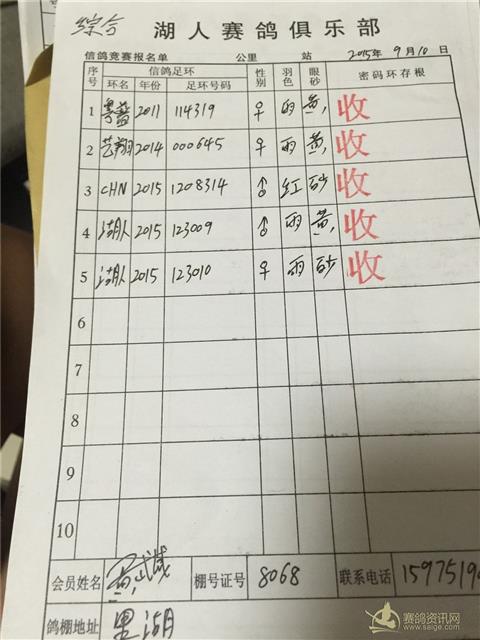 综合
湖人赛鸽俱乐部
信鸽竞赛报名单 公里 站 2015年9月10日
序号 信鸽足环 性别 羽色 眼砂 密码环存根
环名 年份 足环号码
1 2011 114319 ♀ 雨 黄 收
2 艺翔 2014 000645 ♀ 雨 黄 收
3 CHN 2015 1208314 ♂ 红 砂 收
4 湖人 2015 123009 ♂ 雨 黄 收
5 湖人 2015 123010 ♀ 雨 砂 收
6
7
8
9
10
会员姓名 黄 诚 棚号证号 8068 联系电话 1597519
鸽棚地址 里湖
赛鸽资讯网
www.saige.com